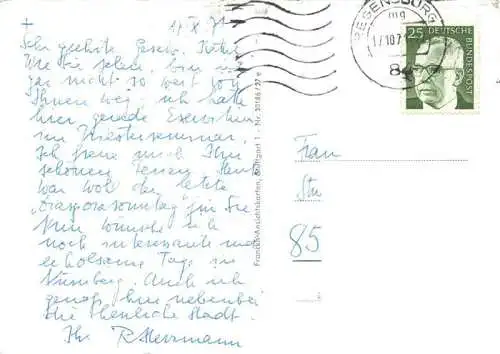 + 17. X. 71
Sehr geehrte
Wie Sie sehen, bin ich
gar nicht so weit von
Ihnen weg; ich halte
hier gerade Exerzitien
im Priesterseminar.
Ich freue mich
schönen
war wohl der letzte
"Diasporasonntag" für Sie
Nun wünsche ich
noch interessante und
erholsame Tage in
Nürnberg. Auch ich
genoß hier nebenbei
die herrliche Stadt.
Ihr R. Herrmann
Franckh-Ansichtskarten, Stuttgart
REGENSBURG
25
DEUTSCHE
BUNDESPOST
84
Frau
85